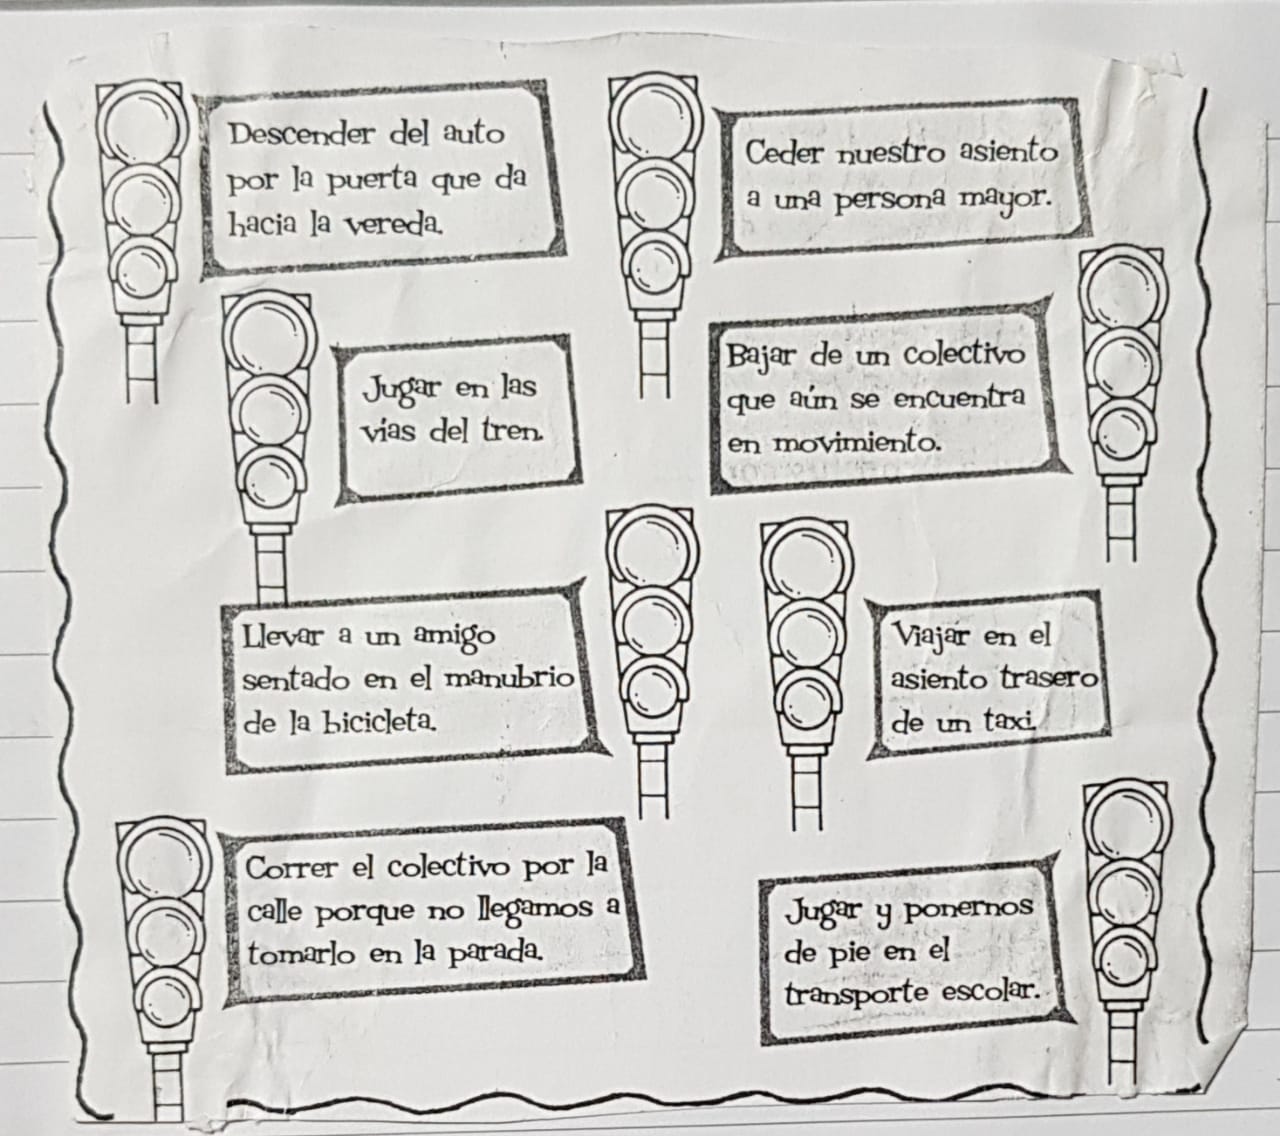 Descender del auto
por la puerta que da
hacia la vereda.
Ceder nuestro asiento
a una persona mayor.
Jugar en las
vias del tren.
Bajar de un colectivo
que aún se encuentra
en movimiento.
Llevar a un amigo
sentado en el manubrio
de la bicicleta.
Viajar en el
asiento trasero
de un taxi.
Correr el colectivo por la
calle porque no llegamos a
tomarlo en la parada.
Jugar y ponernos
de pie en el
transporte escolar.